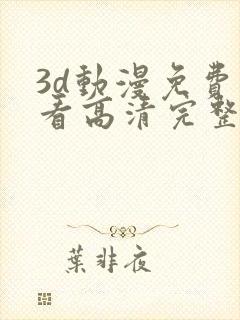 3d動漫免費
看高清完整
葉非夜